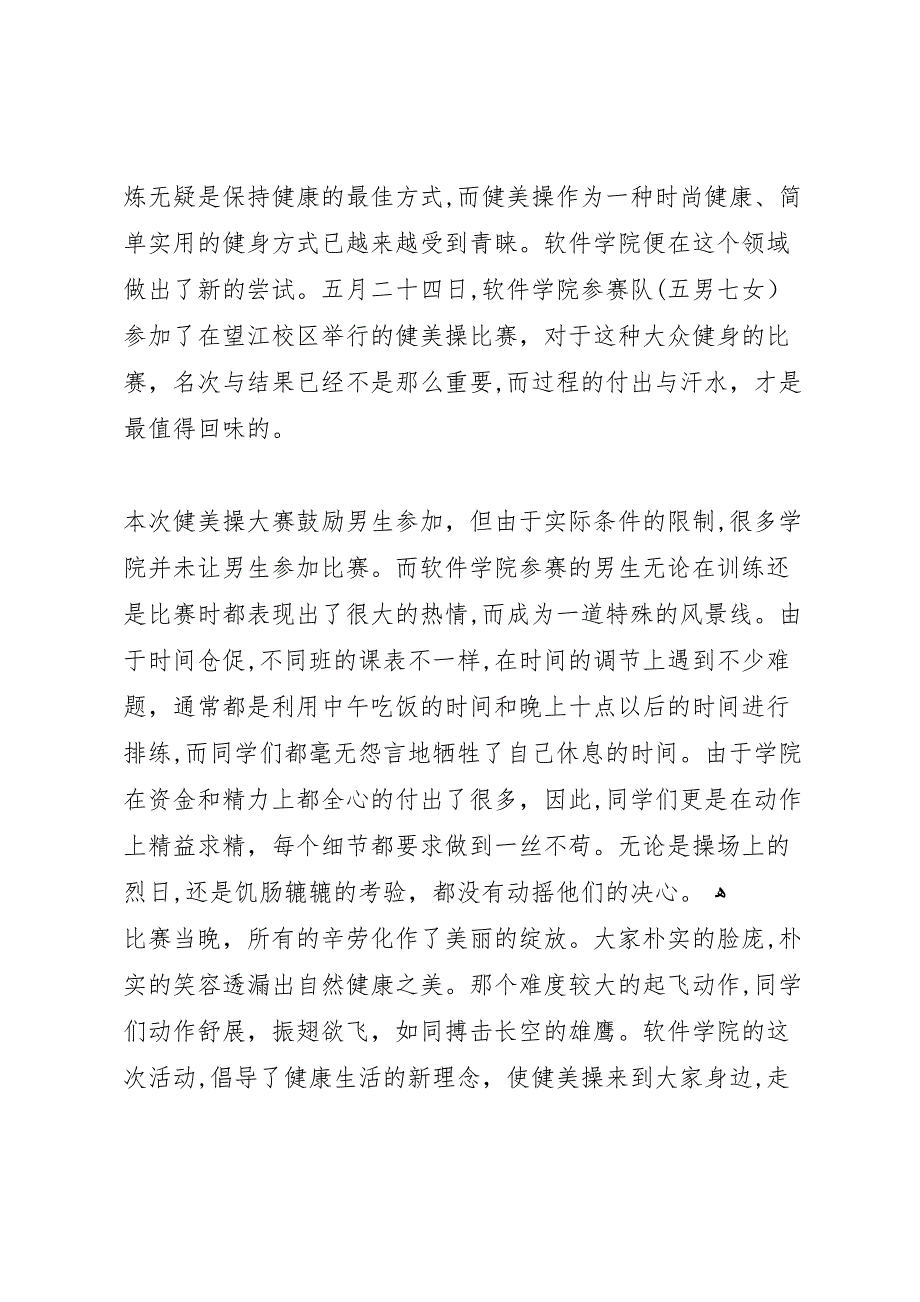 炼无疑是保持健康的最佳方式,而健美操作为一种时尚健康、简
单实用的健身方式已越来越受到青睐。软件学院便在这个领域
做出了新的尝试。五月二十四日,软件学院参赛队(五男七女）
参加了在望江校区举行的健美操比赛，对于这种大众健身的比
赛，名次与结果已经不是那么重要,而过程的付出与汗水，才是
最值得回味的。
本次健美操大赛鼓励男生参加，但由于实际条件的限制,很多学
院并未让男生参加比赛。而软件学院参赛的男生无论在训练还
是比赛时都表现出了很大的热情,而成为一道特殊的风景线。由
于时间仓促,不同班的课表不一样,在时间的调节上遇到不少难
题，通常都是利用中午吃饭的时间和晚上十点以后的时间进行
排练,而同学们都毫无怨言地牺牲了自己休息的时间。由于学院
在资金和精力上都全心的付出了很多，因此,同学们更是在动作
上精益求精，每个细节都要求做到一丝不苟。无论是操场上的
烈日,还是饥肠辘辘的考验，都没有动摇他们的决心。 ﻫ
比赛当晚，所有的辛劳化作了美丽的绽放。大家朴实的脸庞,朴
实的笑容透漏出自然健康之美。那个难度较大的起飞动作,同学
们动作舒展，振翅欲飞，如同搏击长空的雄鹰。软件学院的这
次活动,倡导了健康生活的新理念，使健美操来到大家身边,走